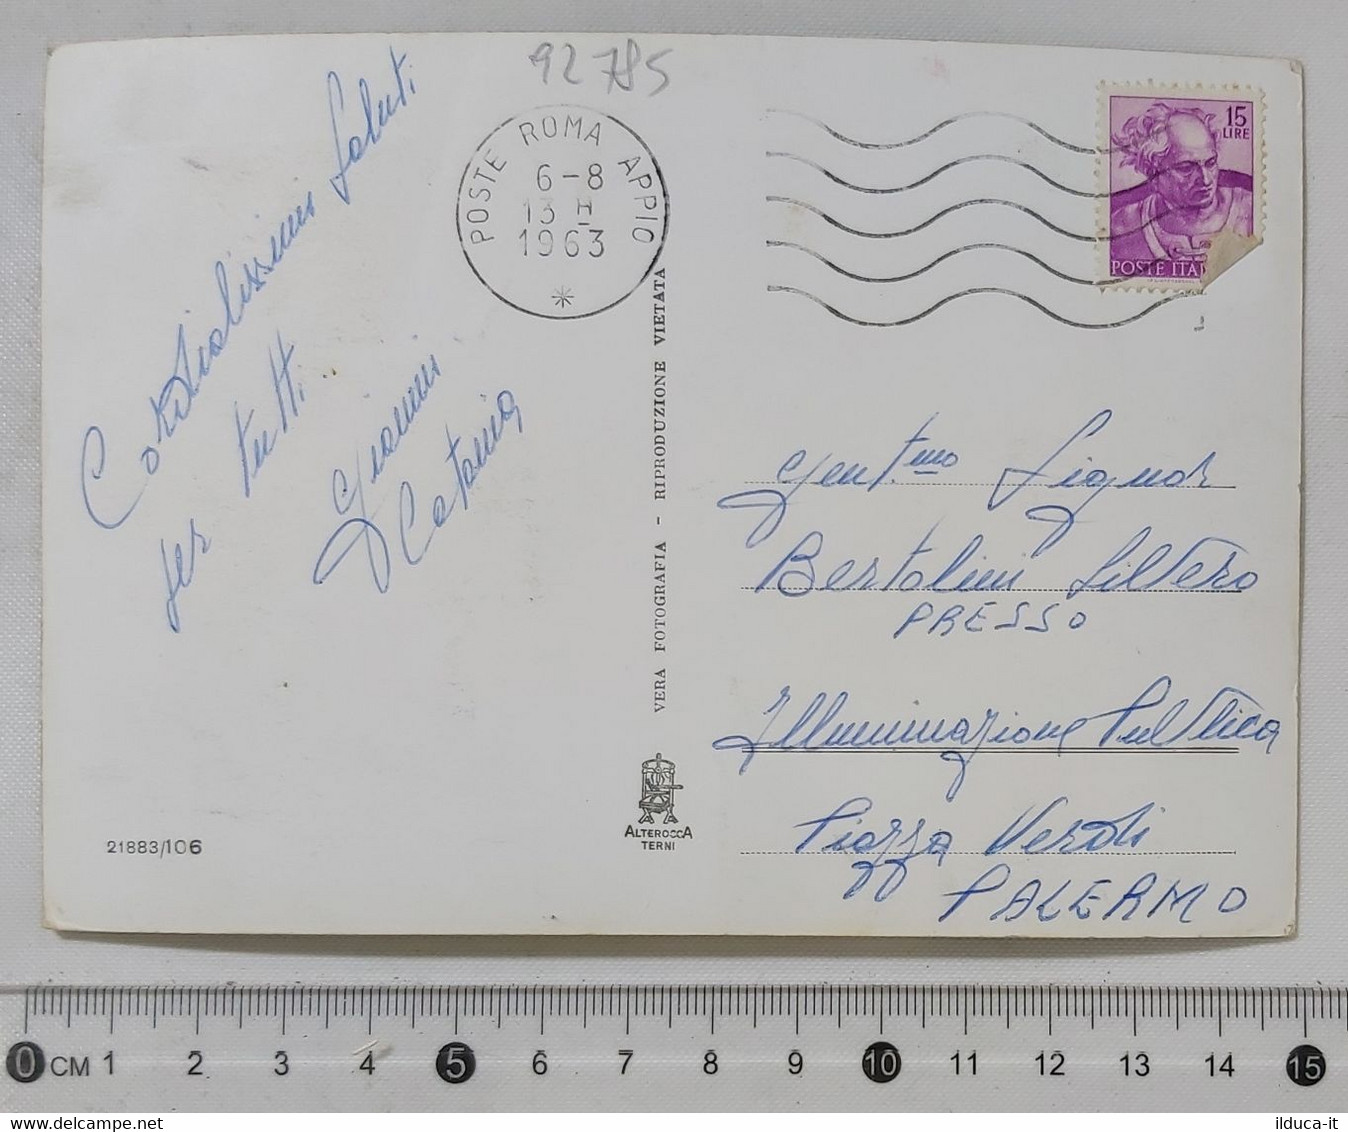 92785
Cordialissimi Saluti
per tutti
Gianni
Catania
POSTE ROMA APPIO
6-8
13 II
1963
15
LIRE
POSTE ITA
VERA FOTOGRAFIA - RIPRODUZIONE VIETATA
Gent.mo Signor
Bertolini Silvero
PRESSO
Illuminazione Pubblica
Piazza Verdi
PALERMO
ALTEROCCA
TERNI
21883/106
0 CM 1 2 3 4 5 6 7 8 9 10 11 12 13 14 15
ilduca-it